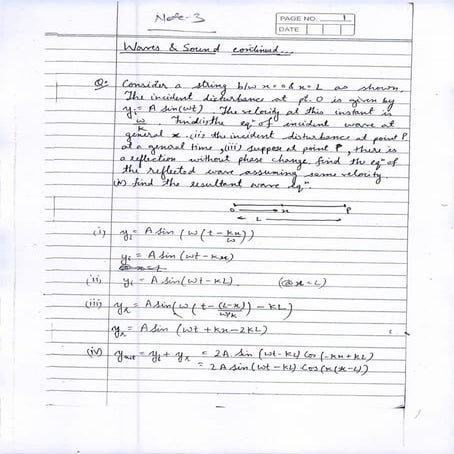 Note-3
PAGE NO. 1
DATE
Waves & Sound continued...
Q: Consider a string b/w x=0 & x=L as shown.
The incident disturbance at pt. O is given by
yi = A sin(ωt) The velocity at this instant is
ω/k. find (i) the eqn of incident wave at
general x (ii) the incident disturbance at point P
at a general time, (iii) suppose at point P, there is
a reflection without phase change, find the eqn of
the reflected wave assuming same velocity.
(iv) find the resultant wave eqn.
O x P
L
(i) yi = A sin (ω(t - kx/ω))
yi = A sin (ωt - kx)
(ii) yi = A sin (ωt - kL) (@ x = L)
(iii) yr = A sin(ω(t - (L-x)/ω/k) - kL)
yr = A sin (ωt + kx - 2kL)
(iv) ynet = yi + yr = 2A sin (ωt - kL) cos (-kx + kL)
= 2A sin (ωt - kL) cos(k(x-L))